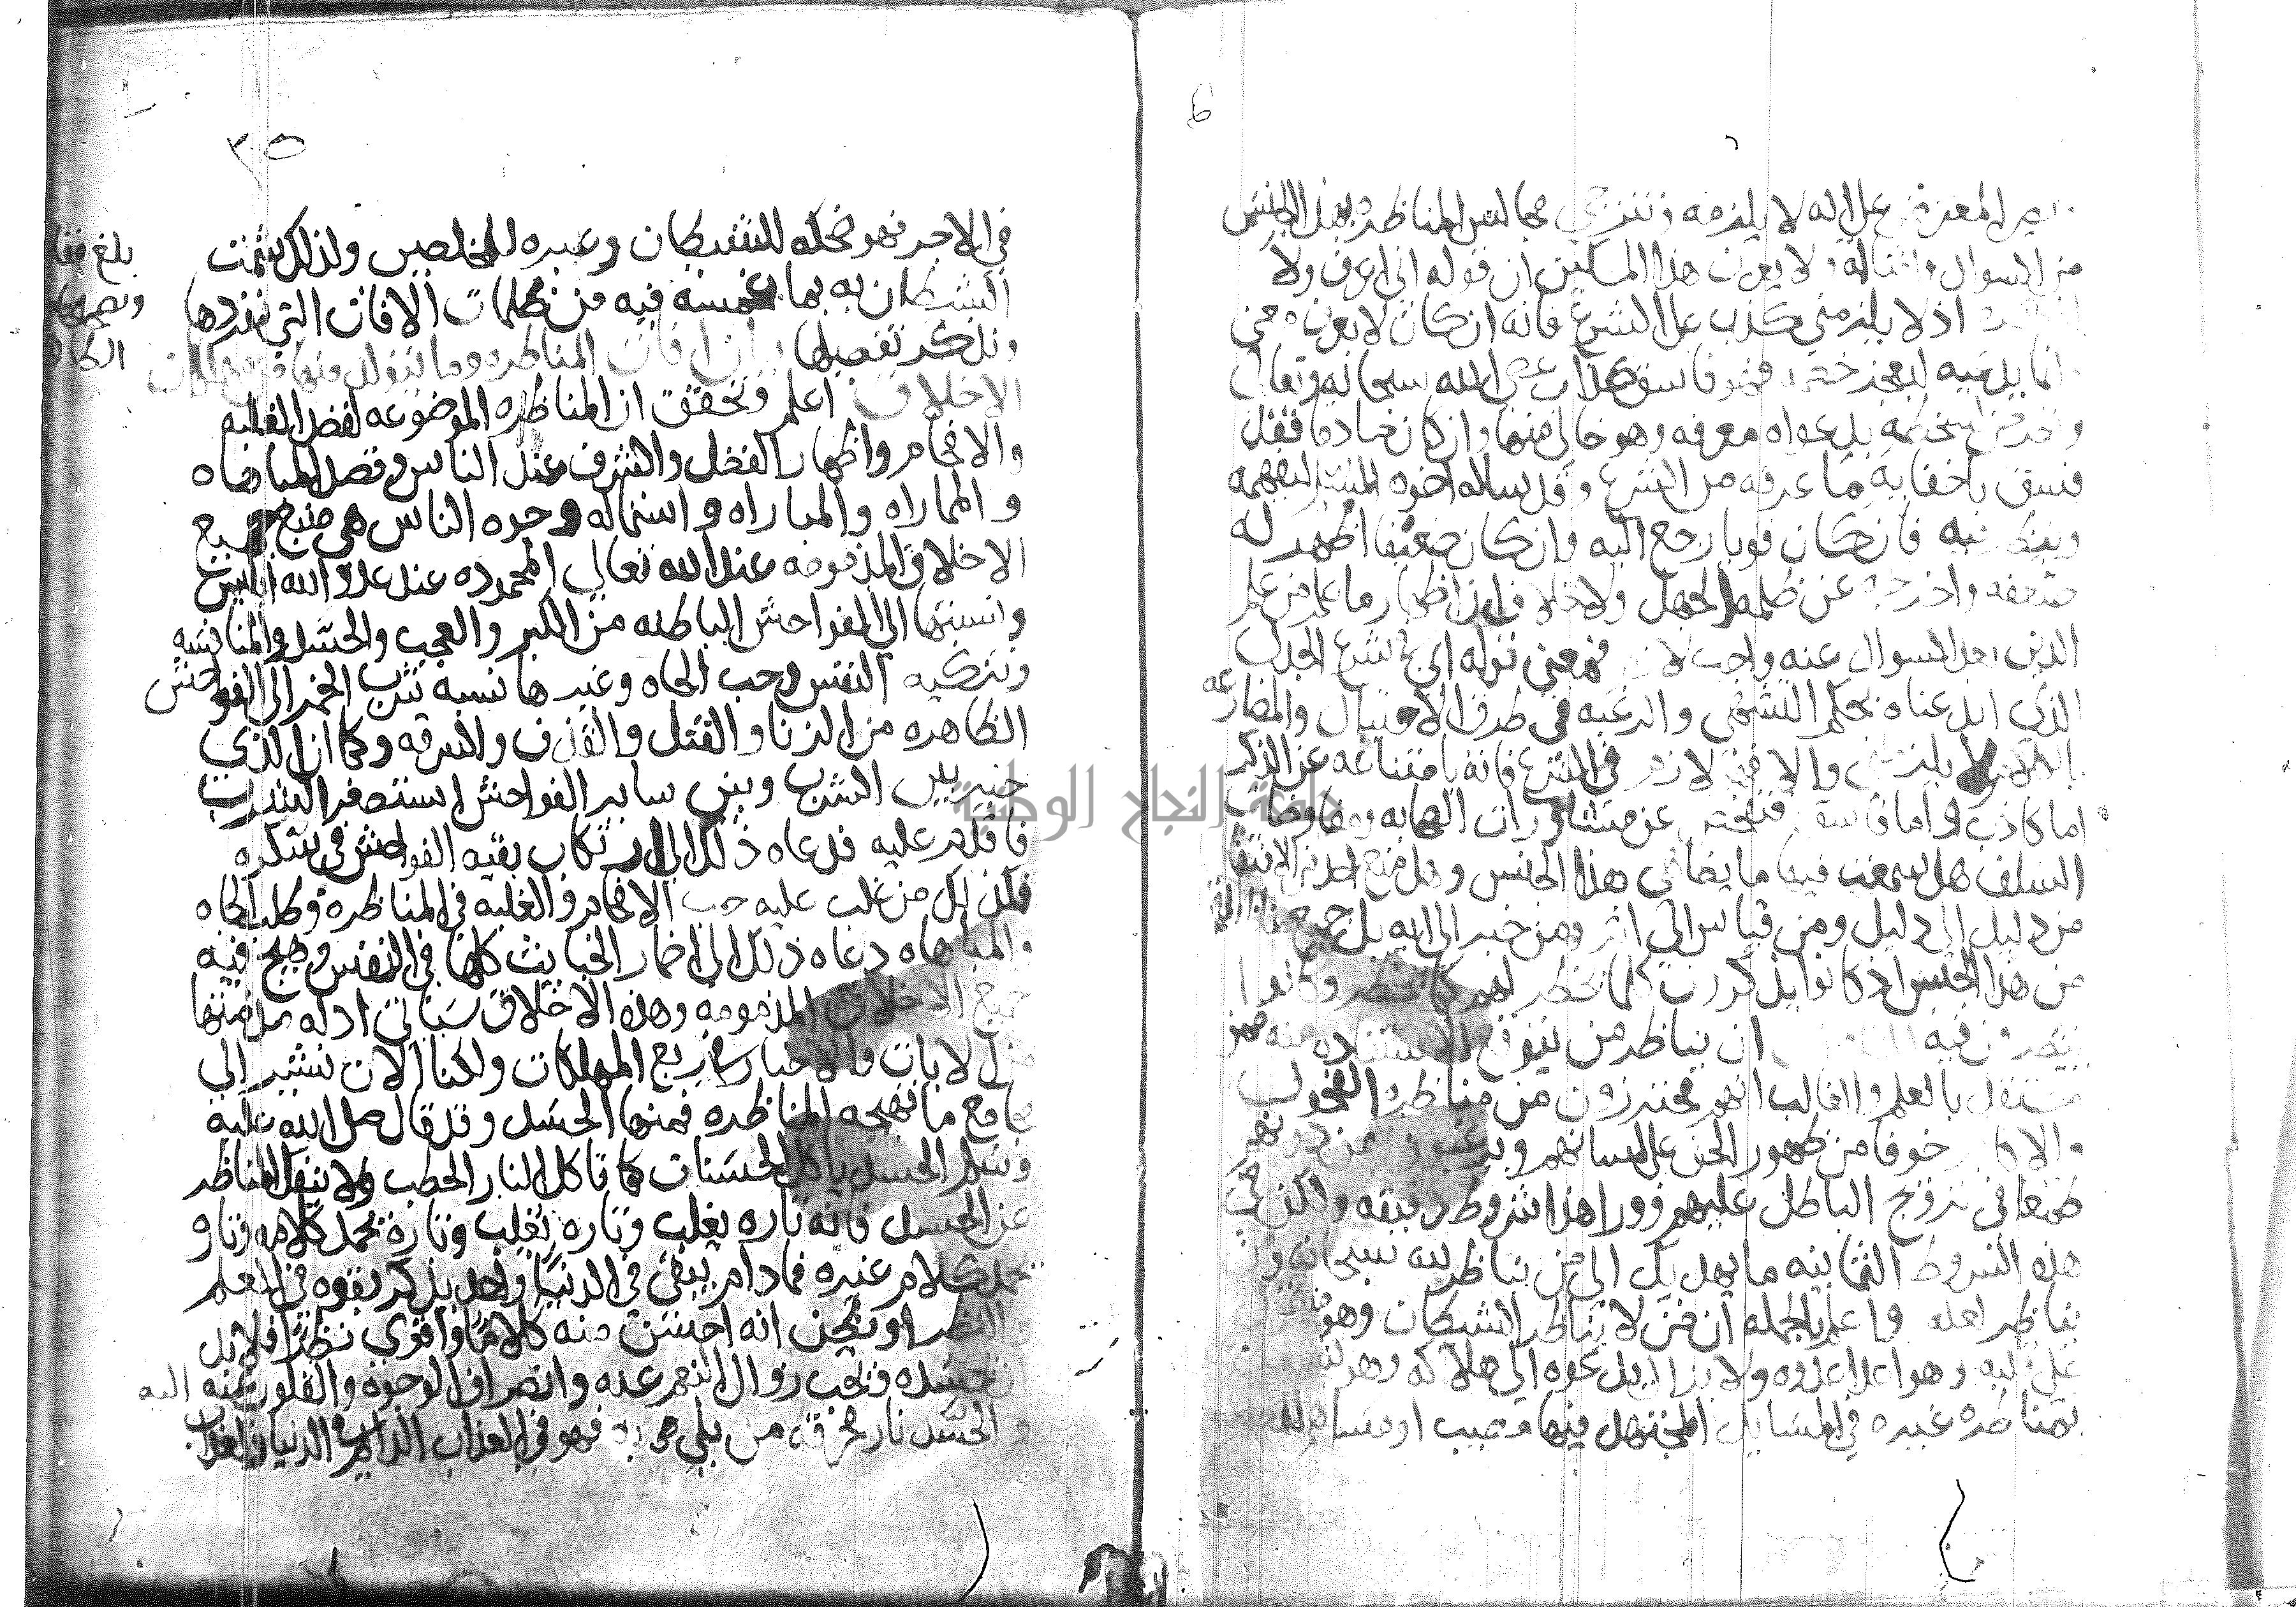 المعرفة على انه لا يلزمه وتنقضي مجالس المناظره بهذا الجنس
من السوال وامثاله ولا يعرف هذا المسكين ان قوله اني اعرف ولا
اذ لا يلزمني كذب على الشرع فانه ان كان لا يعرف معنى
انما يدعيه ليعجز خصمه فهو فاسق كذاب عصى الله سبحانه وتعالى
وتعرض لسخطه بدعواه معرفه وهو خالي منها وان كان صادقا فقد
فسق باخفايه ما عرفه من الشرع وقد ساله اخوه المسلم ليفهمه
وينظر فيه فان كان قويا رجع اليه وان كان ضعيفا اظهر له
ضعفه واخرجه عن ظلمه الجهل ولا خلاف ان اظهار ما علم من علم
الدين بعد السوال عنه واجب لازم فمعنى قوله اي في شرع الجدل
الذي ابدعناه بحكم التشهي والرغبه في طرق الاحتيال والمصارعه
بالكلام لا يلزمني والا فهو لازم في الشرع فانه بامتناعه عن الذكر
اما كاذب واما فاسق فتفحص عن مشاورات الصحابه ومفاوضات
السلف هل سمعت فيها ما يضاهي هذا الجنس وهل منع احد من الانتقال
من دليل الى دليل ومن قياس الى اثر ومن خبر الى ايه بل جميع
من هذا الجنس اذ كانوا يذكرون كلما يخطر لهم كما يخطر وكانوا
ينظرون فيه ان يناظر من يتوقع الاستفاده منه ممن
مشتغل بالعلم والغالب انهم يحترزون من مناظره الفحول
والاكابر خوفا من ظهور الحق على لسانهم ويرغبون فيمن دونهم
طمعا في ترويج الباطل عليهم وورا هذا شروط دقيقه ولكن في
هذه الشروط الثمانيه ما يهديك الى من يناظر لله سبحانه ومن
يناظر لعله واعلم بالجمله ان من لا يناظر الشيطان وهو
على قلبه وهو اعدا عدوه ولا يزال يدعوه الى هلاكه وهو
بمناظره غيره في المسايل المجتهد فيها مصيب او مساهم
٣٥
في الاجر فهو ضحكه للشيطان وعبره للمخلصين ولذلك شمت
الشيطان به بما غمسه فيه من ظلمات الافات التي نعددها
ونذكر تفصيلها بيان افات المناظره وما يتولد منها من مهلكات
الاخلاق اعلم وتحقق ان المناظره الموضوعه لقصد الغلبه
والافحام واظهار الفضل والشرف عند الناس وقصد المباهاه
والمماراه والمباراه واستماله وجوه الناس هي منبع جميع
الاخلاق المذمومه عند الله تعالي المحموده عند عدو الله ابليس
ونسبتها الى الفواحش الباطنه من الكبر والعجب والحسد والمنافسه
وتزكيه النفس وحب الجاه وغيرها نسبه شرب الخمر الى الفواحش
الظاهره من الزنا والقتل والقذف والسرقه وكما ان الذي
خير بين الشرب وبين ساير الفواحش استصغر الشرب
فاقدم عليه فدعاه ذلك الى ارتكاب بقيه الفواحش في سكره
فكذلك من غلب عليه حب الافحام والغلبه في المناظره وطلب الجاه
والمباهاه دعاه ذلك الى اضمار الخبايث كلها في النفس وهيج فيه
جميع الاخلاق المذمومه وهذه الاخلاق سياتي ادله مذمتها
من الايات والاخبار في ربع المهلكات ولكنا الان نشير الي
مجامع ما تهيجه المناظره فمنها الحسد وقد قال صلى الله عليه
وسلم الحسد ياكل الحسنات كما تاكل النار الحطب ولا ينفك المناظر
عن الحسد فانه تاره يغلب وتاره يغلب وتارة يحمد كلامه وتاره
يحمد كلام غيره فما دام يبقي في الدنيا واحد يذكر بقوه في العلم
والنظر او يظن انه احسن منه كلاما واقوي نظرا فلا بد
ان يحسده ويحب زوال النعم عنه وانصراف الوجوه والقلوب عنه اليه
والحسد نار محرقه من بلي به فهو في العذاب الدايم في الدنيا والعذاب
بلغ مقا
جامعة النجاح الوطنية